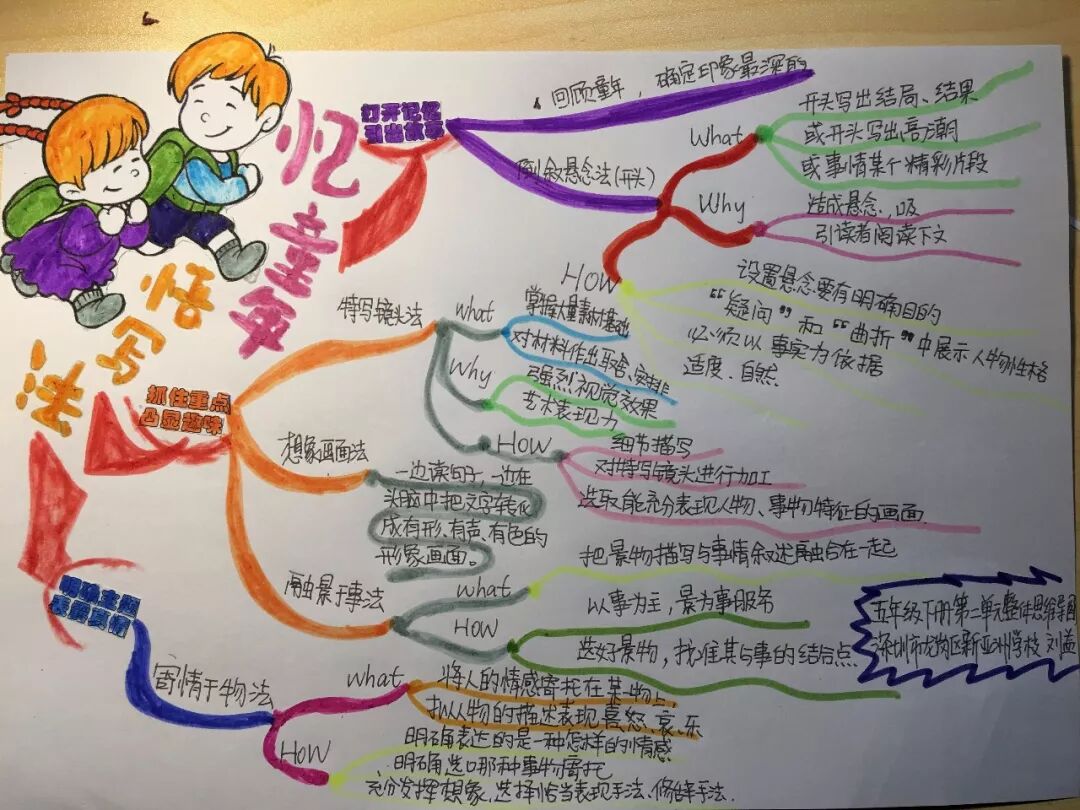 忆童年
悟写法
打开记忆
引出故事
回顾童年，确定印象最深的
倒叙悬念法(开头)
What
开头写出结局、结果
或开头写出高潮
或事情某个精彩片段
Why
造成悬念，吸
引读者阅读下文
How
设置悬念要有明确目的
“疑问”和“曲折”中展示人物性格
必须以事实为依据
适度、自然.
抓住重点
凸显趣味
特写镜头法
what
掌握大量素材基础
对材料作出取舍、安排
Why
强烈视觉效果
艺术表现力
How
细节描写
对特写镜头进行加工
选取能充分表现人物、事物特征的画面.
想象画面法
一边读句子，一边在
头脑中把文字转化
成有形、有声、有色的
形象画面。
融景于事法
what
把景物描写与事情叙述融合在一起
How
以事为主，景为事服务
选好景物，找准其与事的结合点.
明确主题
表露真情
寄情于物法
what
将人的情感寄托在某物上
拟人物的描述表现喜、怒、哀、乐
How
明确表达的是一种怎样的情感
明确选哪种事物寄托
充分发挥想象，选择恰当表现手法、修辞手法.
五年级下册第一单元整体思维导图
深圳市龙岗区新亚洲学校 刘益